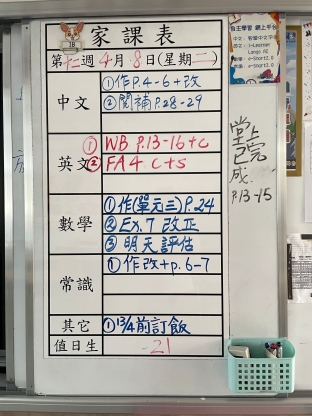 1B
家課表
第十二週4月8日(星期二)
中文
①作P.4-6+改
②閱補P.28-29
英文
① WB P.13-16+c
② FA4 c+s
數學
①作(單元三)P.24
②Ex.7 改正
③明天評估
常識
①作改+p.6-7
其它
①13/4前訂飯
值日生
21
堂上
已完
成
P.13-15
自主學習 網上平台